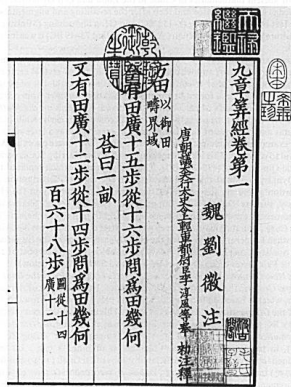 天祿繼鑑
九章筭經卷第一
魏劉徽注
唐朝議大夫行太史令上輕車都尉臣李淳風等奉 勑注釋
方田 以御田疇界域
今有田廣十五步從十六步問爲田幾何
荅曰一畝
又有田廣十二步從十四步問爲田幾何
百六十八步 圖從十四廣十二